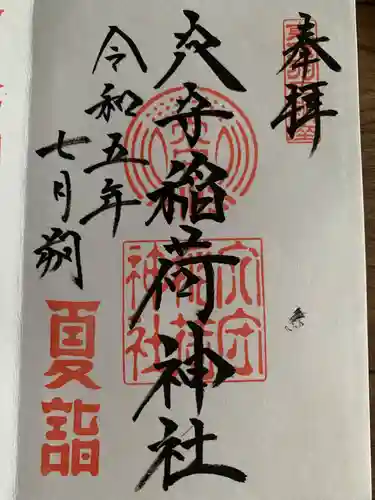 奉拝
穴守稲荷神社
令和五年
七月朔
夏詣
穴守
稲荷
神社